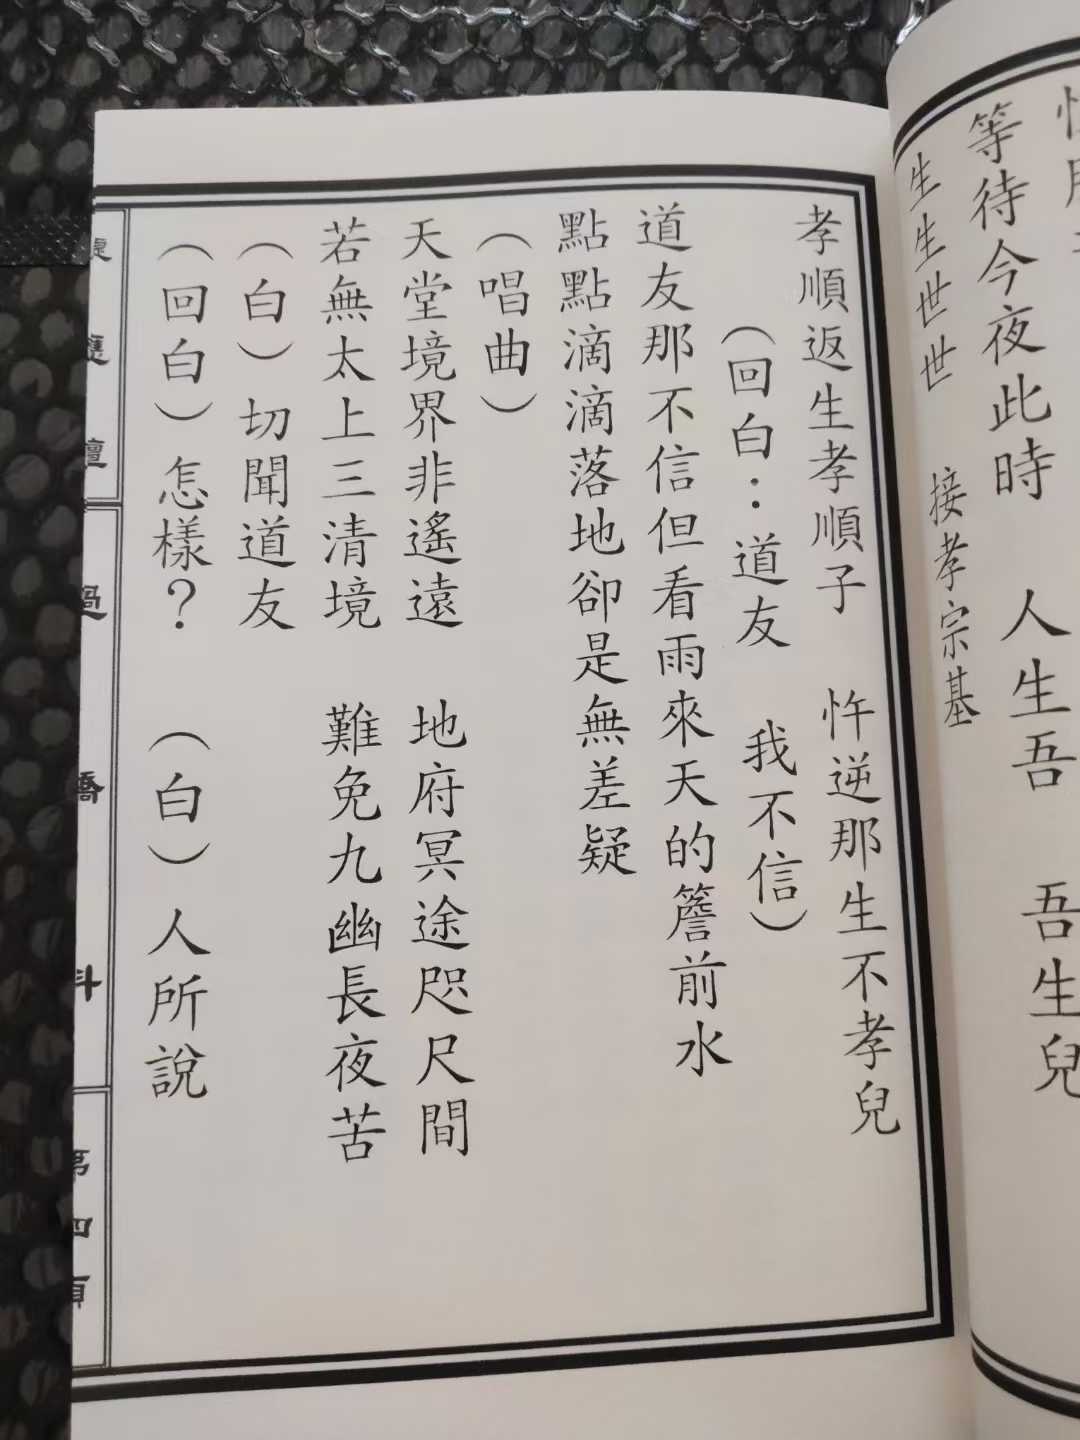 等待今夜此時　人生吾　吾生兒
生生世世　接孝宗基
孝順返生孝順子　忤逆那生不孝兒
（回白：道友　我不信）
道友那不信但看雨來天的簷前水
點點滴滴落地卻是無差疑
（唱曲）
天堂境界非遙遠　地府冥途咫尺間
若無太上三清境　難免九幽長夜苦
（白）切聞道友
（回白）怎樣？　（白）人所說
壇　過橋科　第四頁